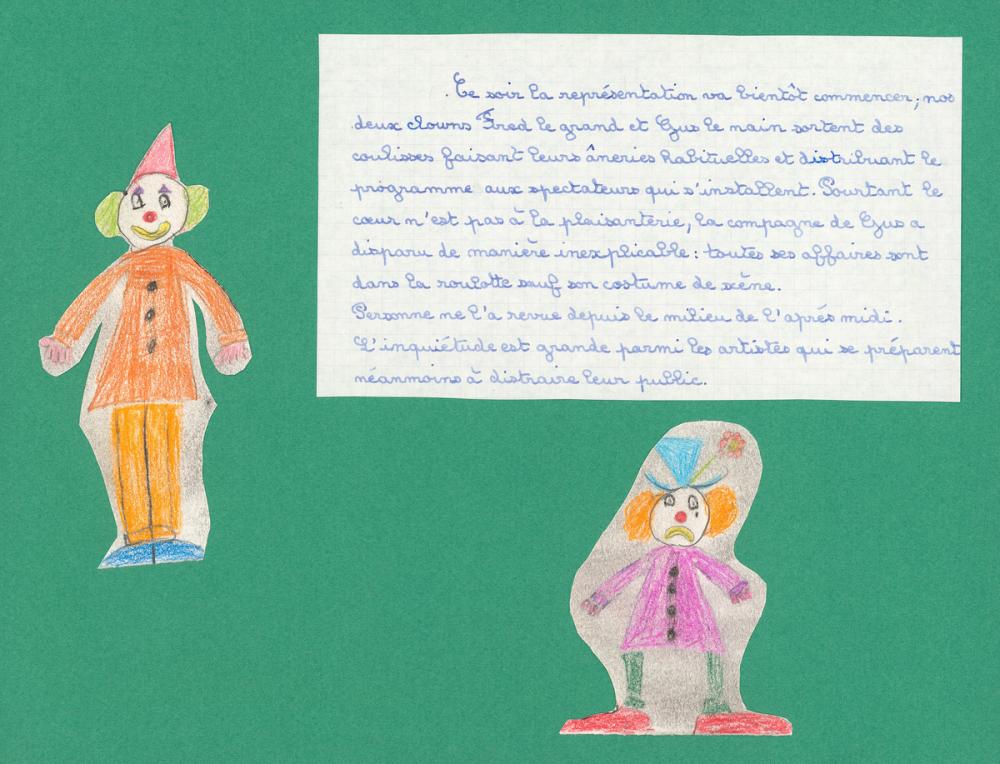 Ce soir la représentation va bientôt commencer, nos
deux clowns Fred le grand et Gus le nain sortent des
coulisses faisant leurs âneries habituelles et distribuant le
programme aux spectateurs qui s'installent. Pourtant le
cœur n'est pas à la plaisanterie, la compagne de Gus a
disparu de manière inexplicable : toutes ses affaires sont
dans la roulotte sauf son costume de scène.
Personne ne l'a revue depuis le milieu de l'après midi.
L'inquiétude est grande parmi les artistes qui se préparent
néanmoins à distraire leur public.